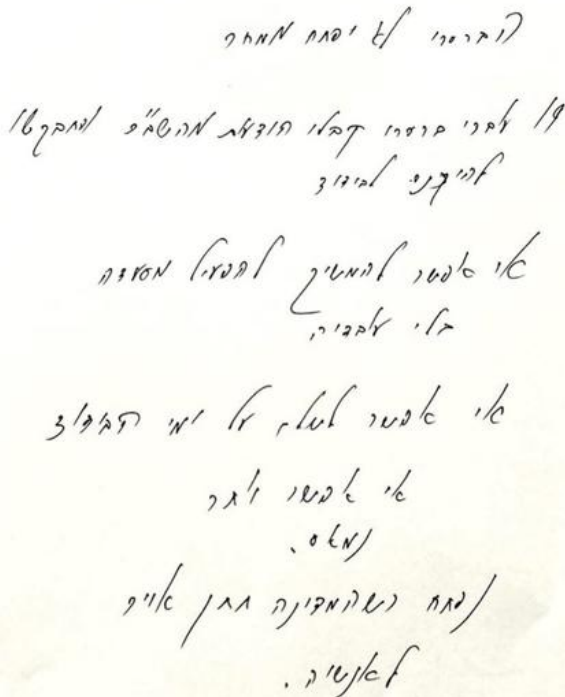 הברסרי לא יפתח ממחר
19 עובדי ברסרי קבלו הודעות מהשב"כ והתבקשו
להיכנס לבידוד
אי אפשר להמשיך להפעיל מסעדה
בלי עובדיה
אי אפשר לשלם על ימי הבידוד
אי אפשר יותר
נמאס.
נפתח כשהמדינה תתן אויר
לאנשיה.